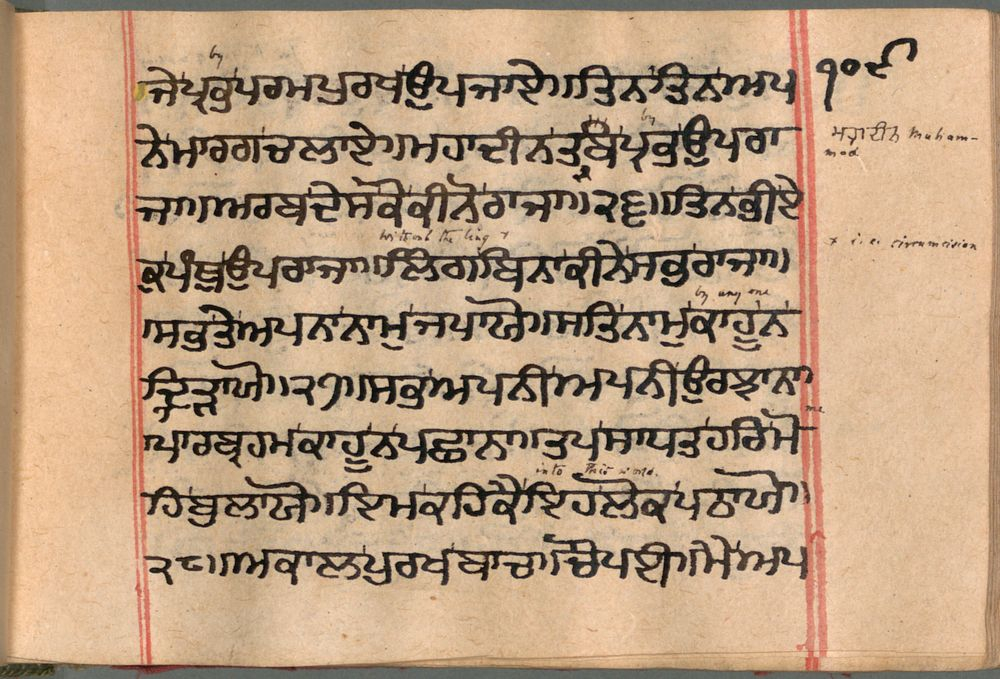 by
ਜੇਪ੍ਰਭੁਪਰਮਪੁਰਖਉਪਜਾਏ॥ਤਿਨਤਿਨਅਪ ੧੦੯
ਨੇਮਾਰਗਚਲਾਏ॥ਮਹਾਦੀਨਤਬਿਪ੍ਰਭੁਉਪਰਾ
by
ਮਹਾਦੀਨ Muham-
mad
ਜਾ॥ਅਰਬਦੇਸਕੋਕੀਨੋਰਾਜਾ॥੨੬॥ਤਿਨਭੀਏ
without the ling x
x i.e. circumcision
ਕੁਪੰਥੁਉਪਰਾਜਾ॥ਲਿੰਗਬਿਨਾਕੀਨੇਸਭੁਰਾਜਾ॥
by any one
ਸਭੁਤੇਅਪਨਾਨਾਮੁਜਪਾਯੋ॥ਸਤਿਨਾਮੁਕਾਹੂੰਨ
ਦ੍ਰਿੜਾਯੋ॥੨੭॥ਸਭੁਅਪਨੀਅਪਨੀਉਰਝਾਨਾ
me
ਪਾਰਬ੍ਰਹਮਕਾਹੂੰਨਪਛਾਨਾ॥ਤਪਸਾਧਤਹਰਿਮੋ
into this world.
ਹਿਬੁਲਾਯੋ॥ਇਮਕਹਿਕੈਇਹਲੋਕਪਠਾਯੋ॥
੨੮॥ਅਕਾਲਪੁਰਖਬਾਚ॥ਚੌਪਈ॥ਮੈਅਪ